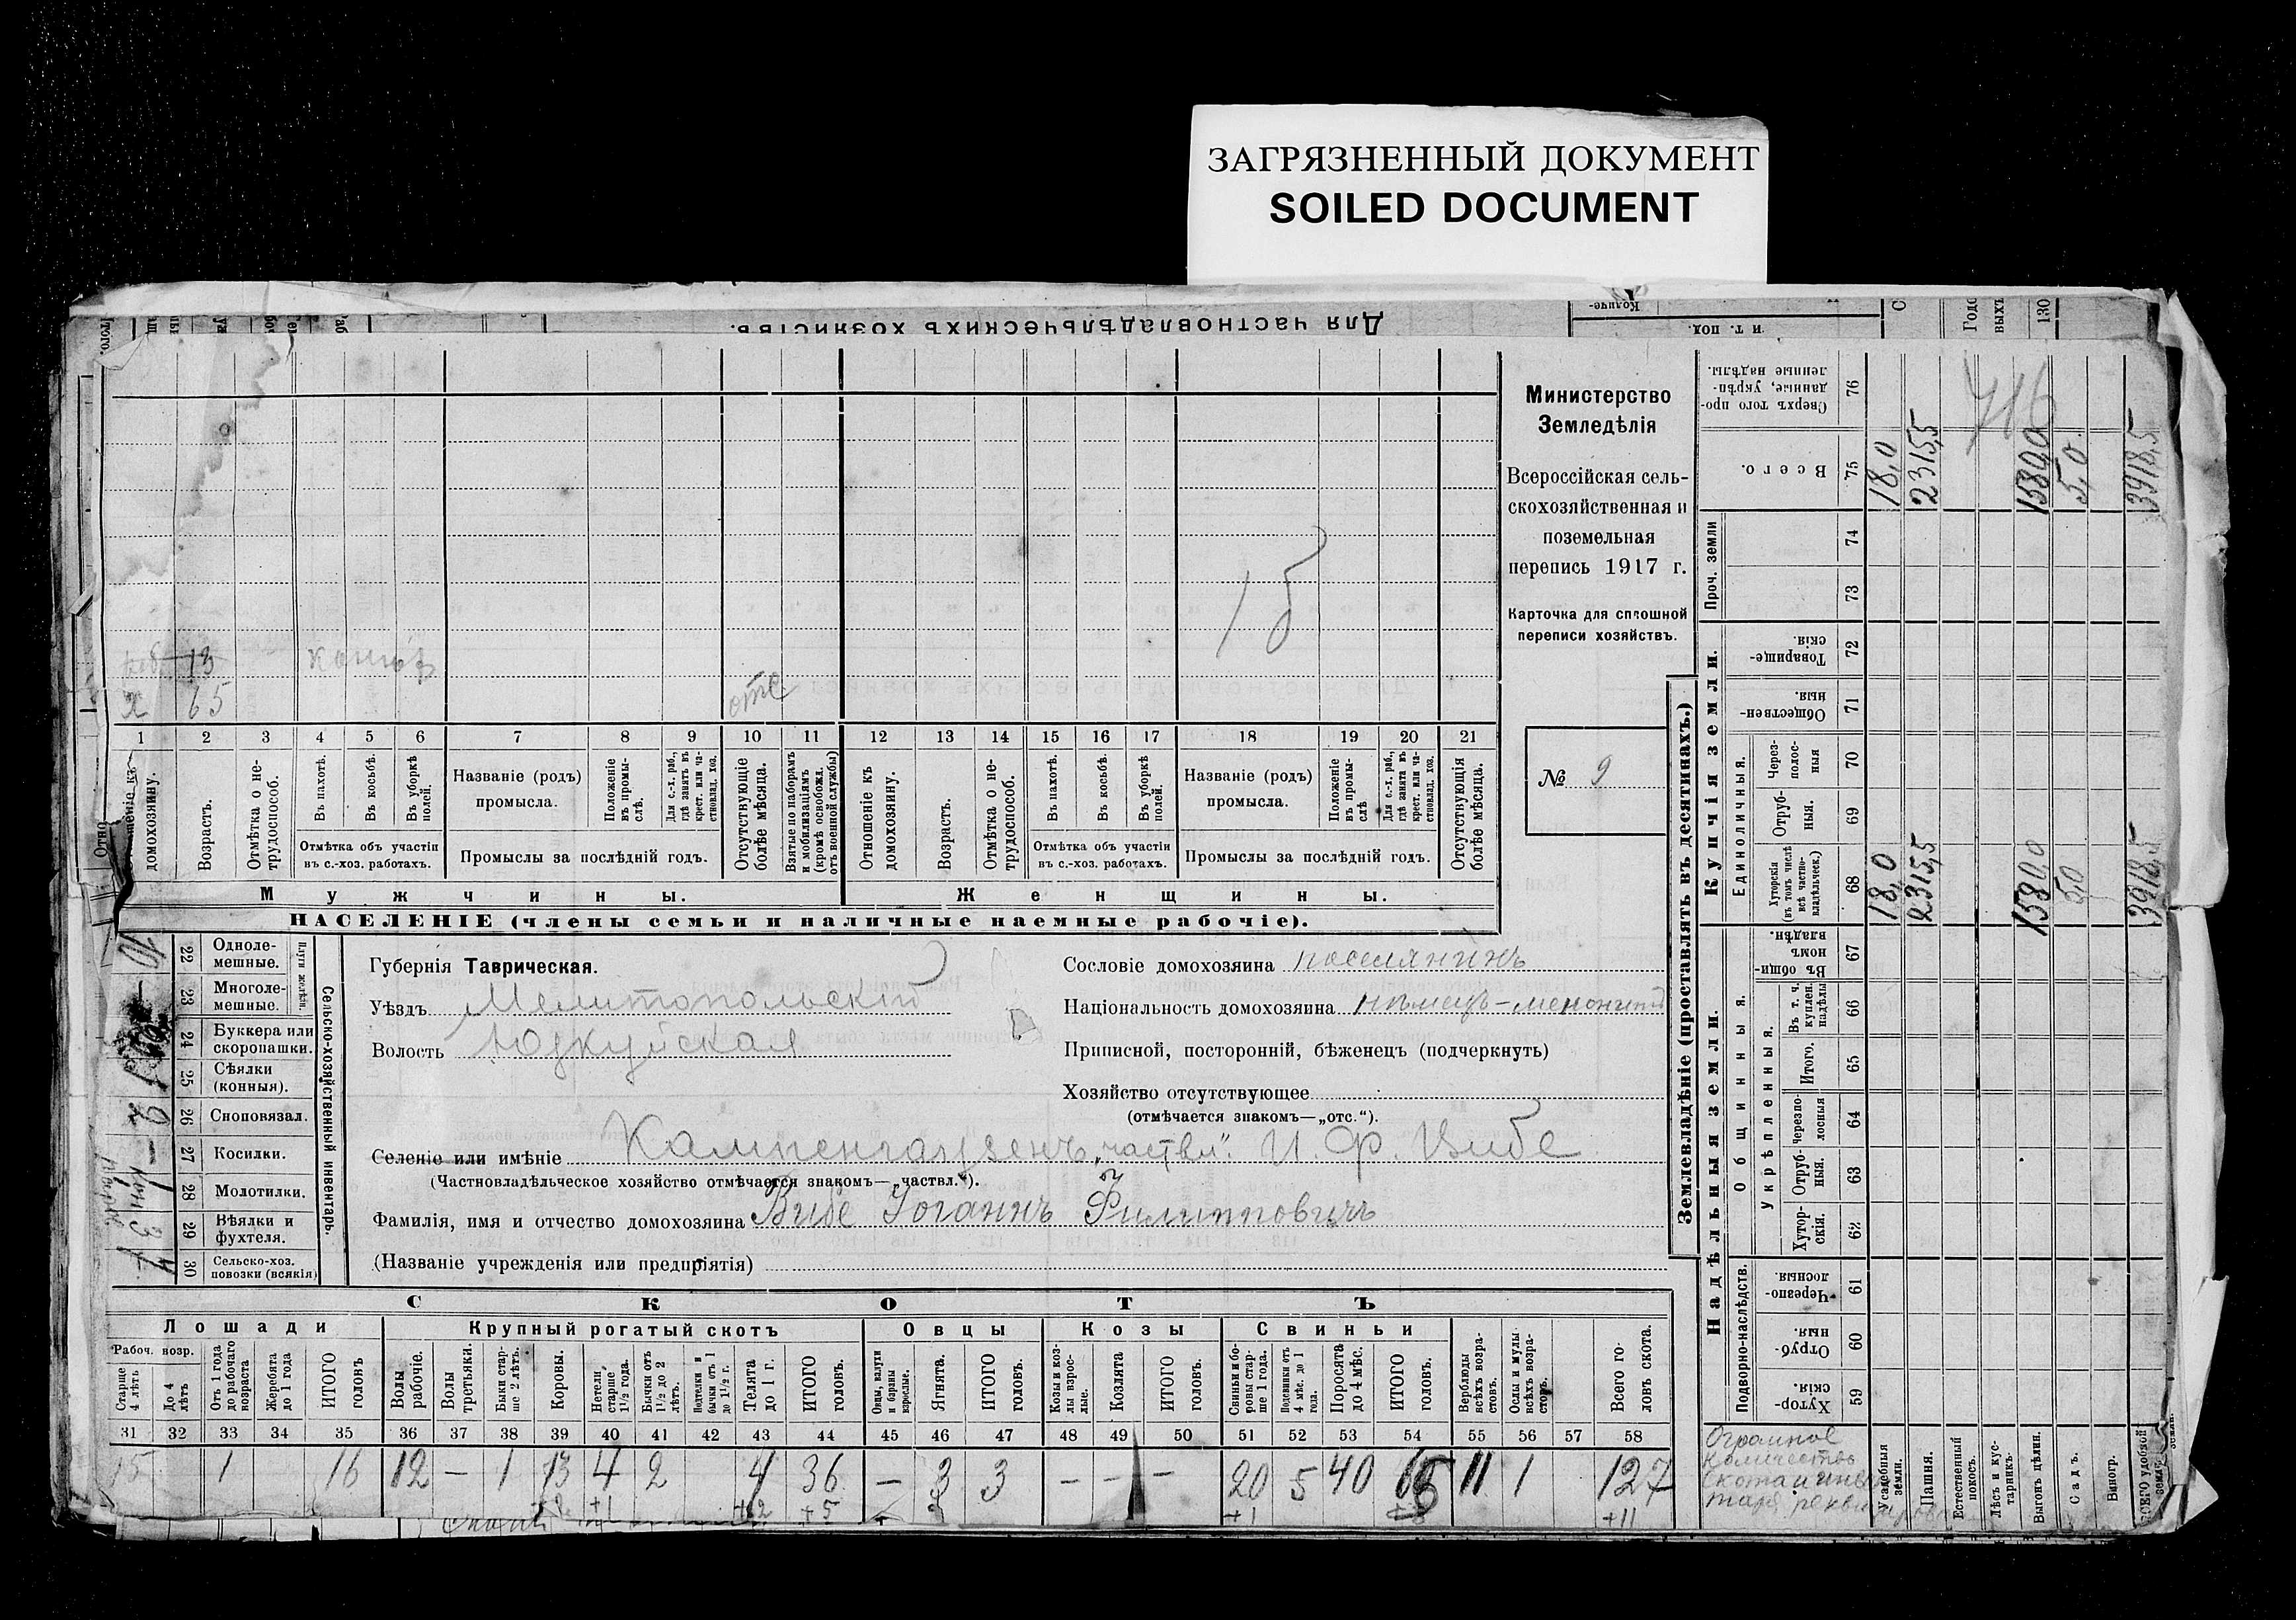 ЗАГРЯЗНЕННЫЙ ДОКУМЕНТ
SOILED DOCUMENT
Для частновладѣльческихъ хозяйствъ.
Количе-
и т. под.
130
Министерство
Земледѣлія
Всероссійская сель-
скохозяйственная и
поземельная
перепись 1917 г.
Карточка для сплошной
переписи хозяйствъ.
№ 9
15
13
х 65
отс
1 2 3 4 5 6 7 8 9 10 11 12 13 14 15 16 17 18 19 20 21
Отношеніе къ домохозяину.
Возрастъ.
Отмѣтка о не-трудоспособ.
Въ пахотѣ.
Въ косьбѣ.
Въ уборкѣ полей.
Отмѣтка объ участіи
въ с.-хоз. работахъ.
Названіе (родъ)
промысла.
Положеніе въ промы-слѣ.
Для с.-х. раб., гдѣ занятъ въ крест. или ча-стновлад. хоз.
Промыслы за послѣдній годъ.
Отсутствующіе болѣе мѣсяца.
Взятые по наборамъ и мобилизаціямъ (кромѣ освобожд. отъ военной службы)
Отношеніе къ домохозяину.
Возрастъ.
Отмѣтка о не-трудоспособ.
Въ пахотѣ.
Въ косьбѣ.
Въ уборкѣ полей.
Отмѣтка объ участіи
въ с.-хоз. работахъ.
Названіе (родъ)
промысла.
Положеніе въ промы-слѣ
Для с.-х. раб., гдѣ занята въ крест. или ча-стновлад. хоз.
Промыслы за послѣдній годъ.
Отсутствующія болѣе мѣсяца.
Мужчины.
Женщины.
НАСЕЛЕНІЕ (члены семьи и наличные наемные рабочіе).
Сельско-хозяйственный инвентарь.
Плуги желѣзн.
22 Одноле-мешные. 10
23 Многоле-мешные.
24 Буккера или скоропашки.
25 Сѣялки (конныя).
26 Сноповязал. 2
27 Косилки. —
28 Молотилки.
29 Вѣялки и фухтеля. 3
30 Сельско-хоз. повозки (всякія)
Губернія Таврическая.
Уѣздъ Мелитопольскій
Волость Юзкуйская
Сословіе домохозяина поселянинъ
Національность домохозяина нѣмецъ-меноннитъ
Приписной, посторонній, бѣженецъ (подчеркнуть)
Хозяйство отсутствующее
(отмѣчается знакомъ—„отс.“).
Селеніе или имѣніе Кампенгаузенъ „частвл“. И. Ф. Вибе
(Частновладѣльческое хозяйство отмѣчается знакомъ—„частвл.“).
Фамилія, имя и отчество домохозяина Вибе Іоганнъ Филипповичъ
(Названіе учрежденія или предпріятія)
СКОТЪ
Лошади
Крупный рогатый скотъ
Овцы
Козы
Свиньи
Рабоч. возр.
Старше 4 лѣтъ
До 4 лѣтъ
Отъ 1 года до рабочаго возраста
Жеребята до 1 года
ИТОГО головъ
Волы рабочіе.
Волы третьяки.
Быки стар-ше 2 лѣтъ.
Коровы.
Нетели старше 1½ года.
Бычки отъ 1½ до 2 лѣтъ.
Подтелки и бычки отъ 1 до 1½ г.
Телята до 1 г.
ИТОГО головъ.
Овцы, валухи и бараны взрослые.
Ягнята.
ИТОГО головъ.
Козы и коз-лы взрос-лые.
Козлята
ИТОГО головъ.
Свиньи и бо-ровы стар-ше 1 года.
Подсвинки отъ 4 мѣс. до 1 года.
Поросята до 4 мѣс.
ИТОГО головъ.
Верблюды всѣхъ возра-стовъ.
Ослы и мулы всѣхъ возра-стовъ.
Всего го-ловъ скота.
31 32 33 34 35 36 37 38 39 40 41 42 43 44 45 46 47 48 49 50 51 52 53 54 55 56 57 58
15 1 16 12 — 1 13 4 2 4 36 — 3 3 — — — 20 5 40 65 11 1 127
+1 +2 +5 +1 +11
Землевладѣніе (проставлять въ десятинахъ.)
Надѣльныя земли.
Купчія земли.
Проч. земли
Подворно-наслѣдств.
Общинныя.
Укрѣпленныя.
Единоличныя.
Хутор-скія. 59
Отруб-ныя. 60
Черезпо-лосныя. 61
Хутор-скія. 62
Отруб-ныя. 63
Черезпо-лосныя 64
Итого. 65
Въ т. ч. куплен. надѣлы 66
Въ общин-номъ владѣн. 67
Хуторскія (въ томъ числѣ всѣ частно-владѣльческ.) 68
Отруб-ныя. 69
Через-полос-ныя 70
Обществен-ныя. 71
Товарище-скія. 72
73
74
Всего. 75
Сверхъ того про-данные, укрѣп-ленные надѣлы. 76
Усадебныя земли. 18,0 18,0
Пашня. 2315,5 2315,5
Естественный покосъ.
Лѣсъ и кус-тарникъ
Выгонъ цѣлин. 1580,0 1580,0
Садъ. 5,0 5,0
Виногр.
ВСЕГО удобной земли. 3918,5 3918,5
716
Огромное
количество
скота и инвен
таря рекви